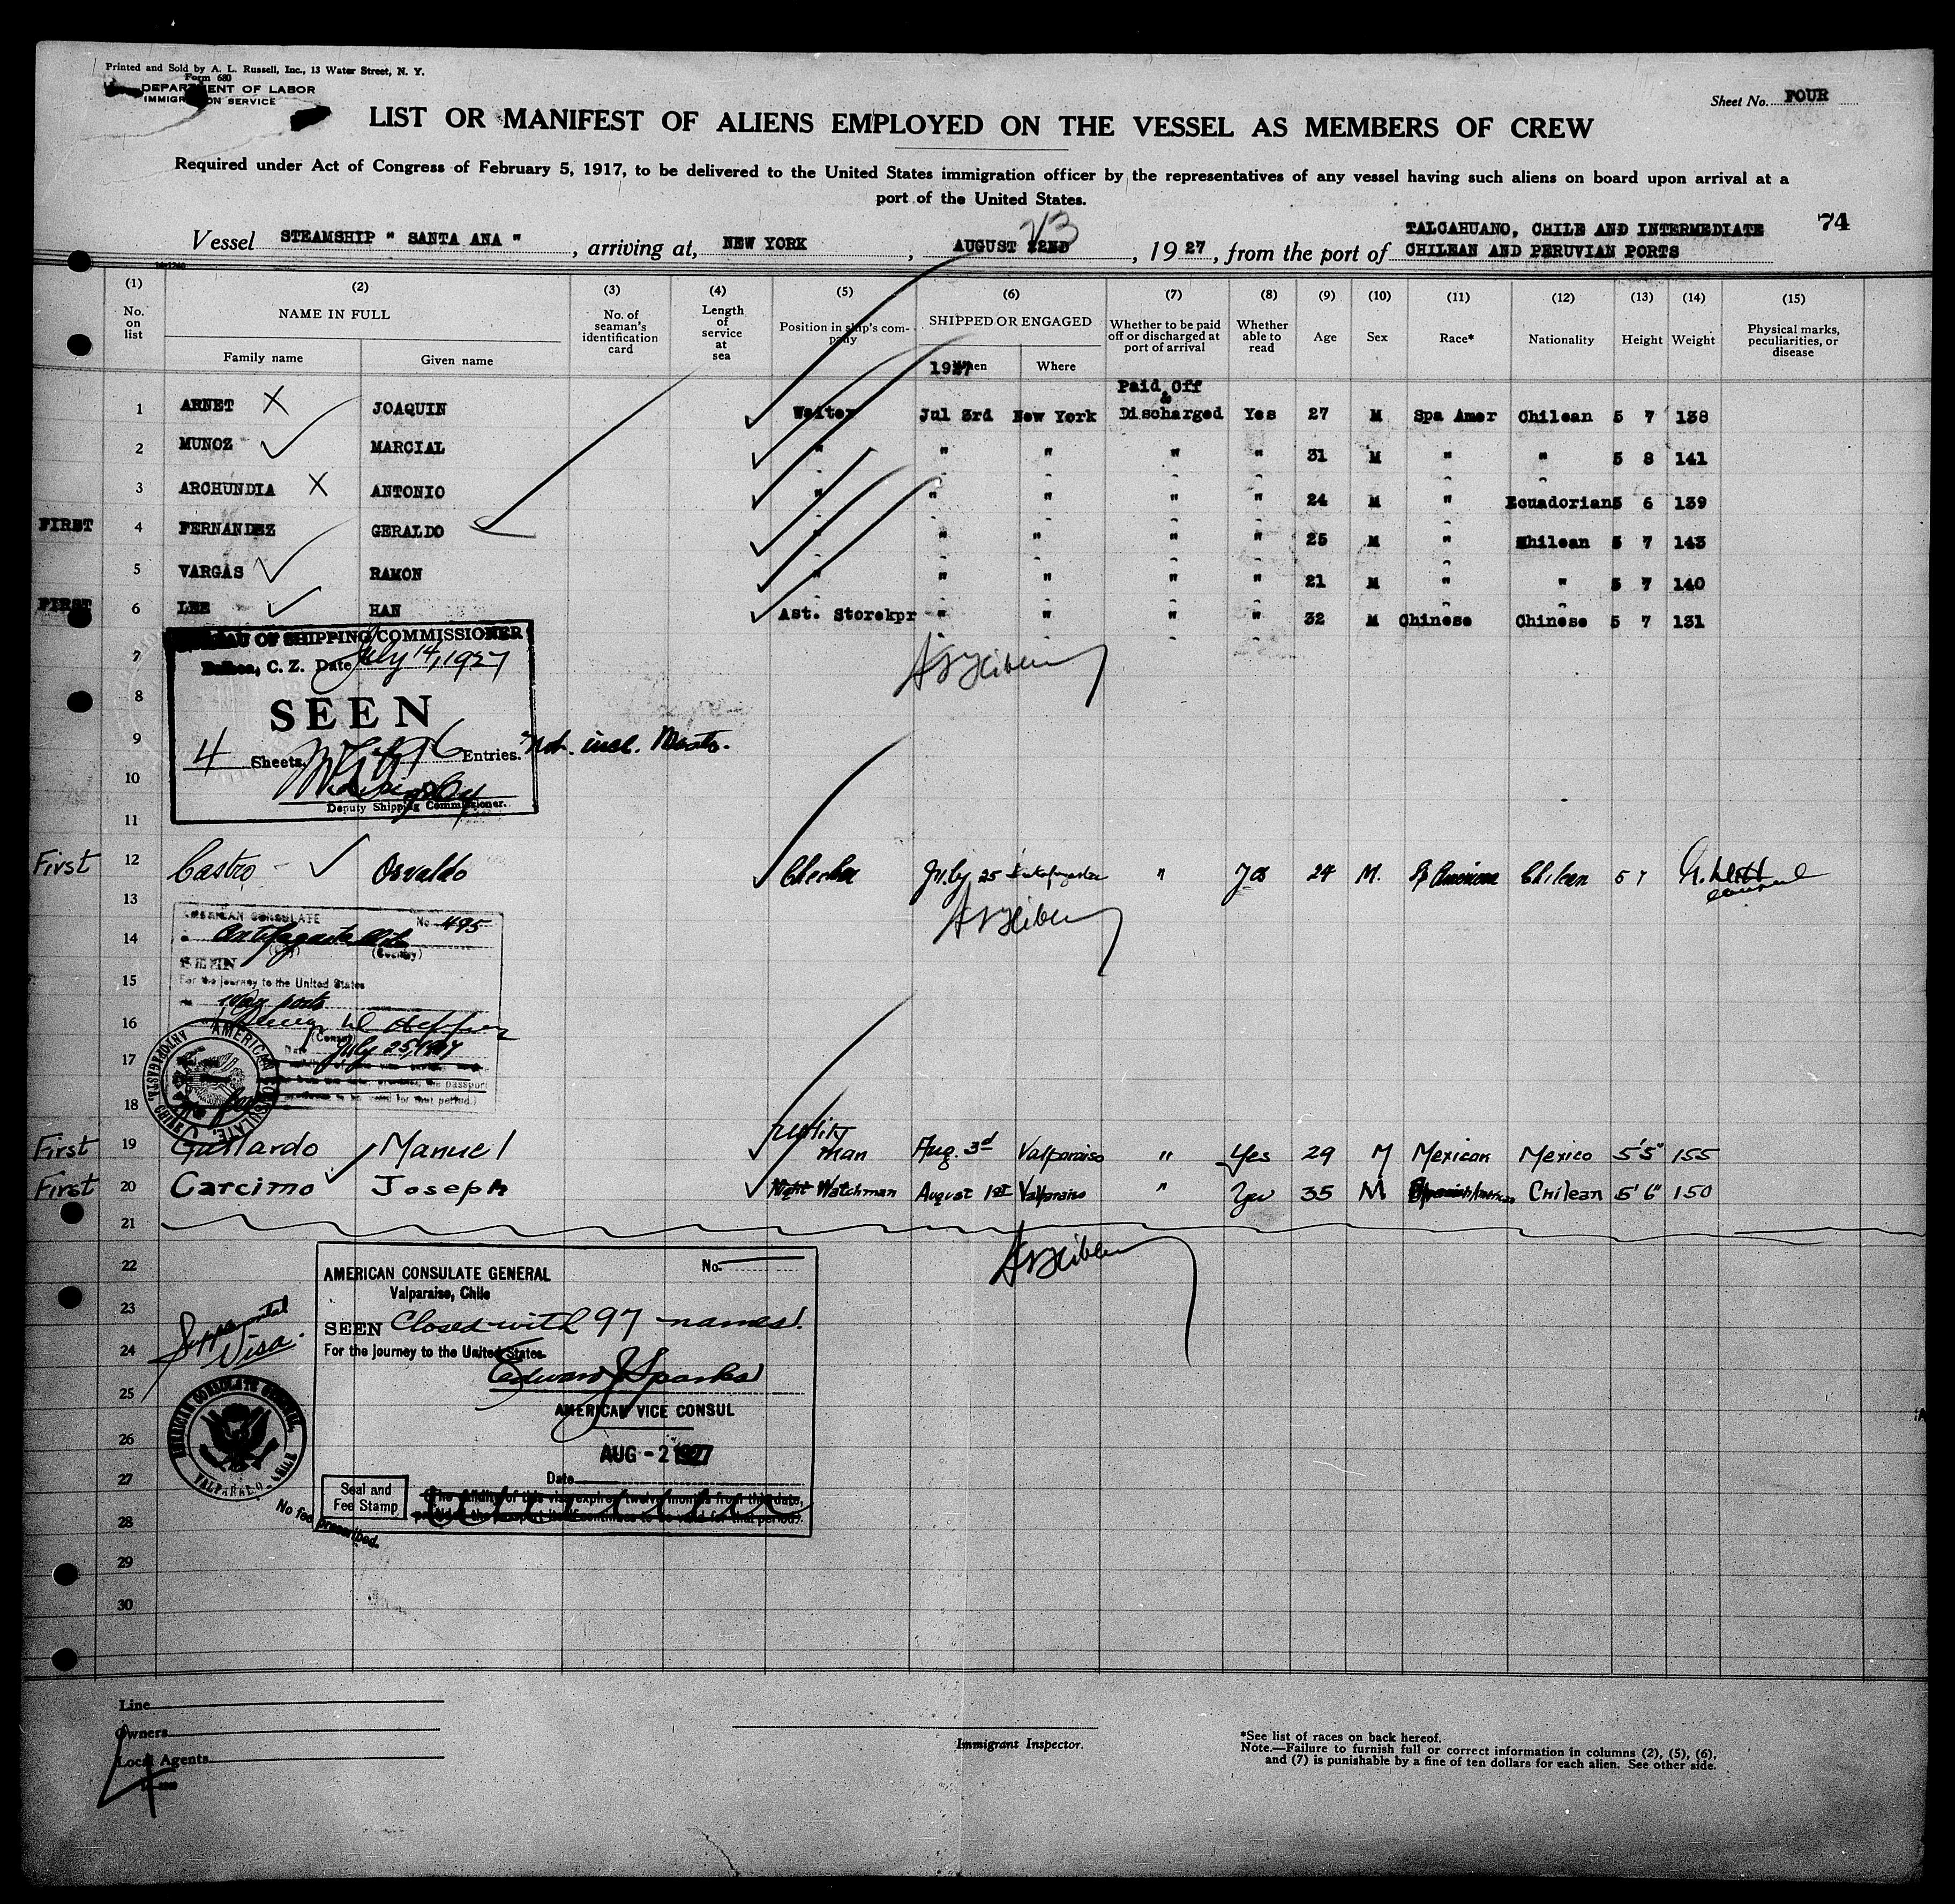 Printed and Sold by A. L. Russell, Inc., 13 Water Street, N. Y.
Form 680
DEPARTMENT OF LABOR
IMMIGRATION SERVICE
Sheet No. FOUR
LIST OR MANIFEST OF ALIENS EMPLOYED ON THE VESSEL AS MEMBERS OF CREW
Required under Act of Congress of February 5, 1917, to be delivered to the United States immigration officer by the representatives of any vessel having such aliens on board upon arrival at a
port of the United States.
74
23
TALCAHUANO, CHILE AND INTERMEDIATE
Vessel STEAMSHIP " SANTA ANA " , arriving at, NEW YORK , AUGUST 22ND , 19 27 , from the port of CHILEAN AND PERUVIAN PORTS
(1) (2) (3) (4) (5) (6) (7) (8) (9) (10) (11) (12) (13) (14) (15)
No. on list
NAME IN FULL
Family name Given name
No. of seaman's identification card
Length of service at sea
Position in ship's company
SHIPPED OR ENGAGED
1927 When Where
Whether to be paid off or discharged at port of arrival
Whether able to read
Age Sex Race* Nationality Height Weight
Physical marks, peculiarities, or disease
Paid Off
&
1 ARNET X JOAQUIN Waiter Jul 3rd New York Discharged Yes 27 M Spa Amer Chilean 5 7 138
2 MUNOZ MARCIAL " " " " " 31 M " " 5 8 141
3 ARCHUNDIA X ANTONIO " " " " " 24 M " Ecuadorian 5 6 139
FIRST 4 FERNANDEZ GERALDO " " " " " 25 M " Chilean 5 7 143
5 VARGAS RAMON " " " " " 21 M " " 5 7 140
FIRST 6 LEE HAN Ast. Storekpr " " " " 32 M Chinese Chinese 5 7 131
BUREAU OF SHIPPING COMMISSIONER
7 Balboa, C. Z. Date July 14, 1927
8 SEEN
9 4 Sheets 96 Entries. Not. incl. Mast.
10
Deputy Shipping Commissioner.
11
First 12 Castro Osvaldo Checker July 25 Antofagasta " Yes 24 M. Sp American Chilean 5 7
13
AMERICAN CONSULATE No 495
14 Antofagasta Chile
(City) (Country)
SEEN
15 For the journey to the United States
way ports
16
(Consul)
Date July 25, 1927
17
18
AMERICAN CONSULATE, ANTOFAGASTA, CHILE
First 19 Gallardo Manuel Utility man Aug. 3d Valparaiso " Yes 29 M Mexican Mexico 5'5" 155
First 20 Carcimo Joseph Night Watchman August 1st Valparaiso " Yes 35 M Spanish American Chilean 5' 6" 150
21
22
AMERICAN CONSULATE GENERAL No.
Valparaiso, Chile
23
SEEN Closed with 97 names.
24
Supplemental Visa.
For the journey to the United States
Edward J Sparks
25
AMERICAN VICE CONSUL
26
AUG - 2 1927
27
Date
AMERICAN CONSULATE GENERAL VALPARAISO
Seal and
Fee Stamp
(The validity of this visa expires twelve months from this date,
provided the passport itself continues to be valid for that period).
28
No fee prescribed.
29
30
Line
Owners
Local Agents
Immigrant Inspector.
*See list of races on back hereof.
Note.—Failure to furnish full or correct information in columns (2), (5), (6),
and (7) is punishable by a fine of ten dollars for each alien. See other side.